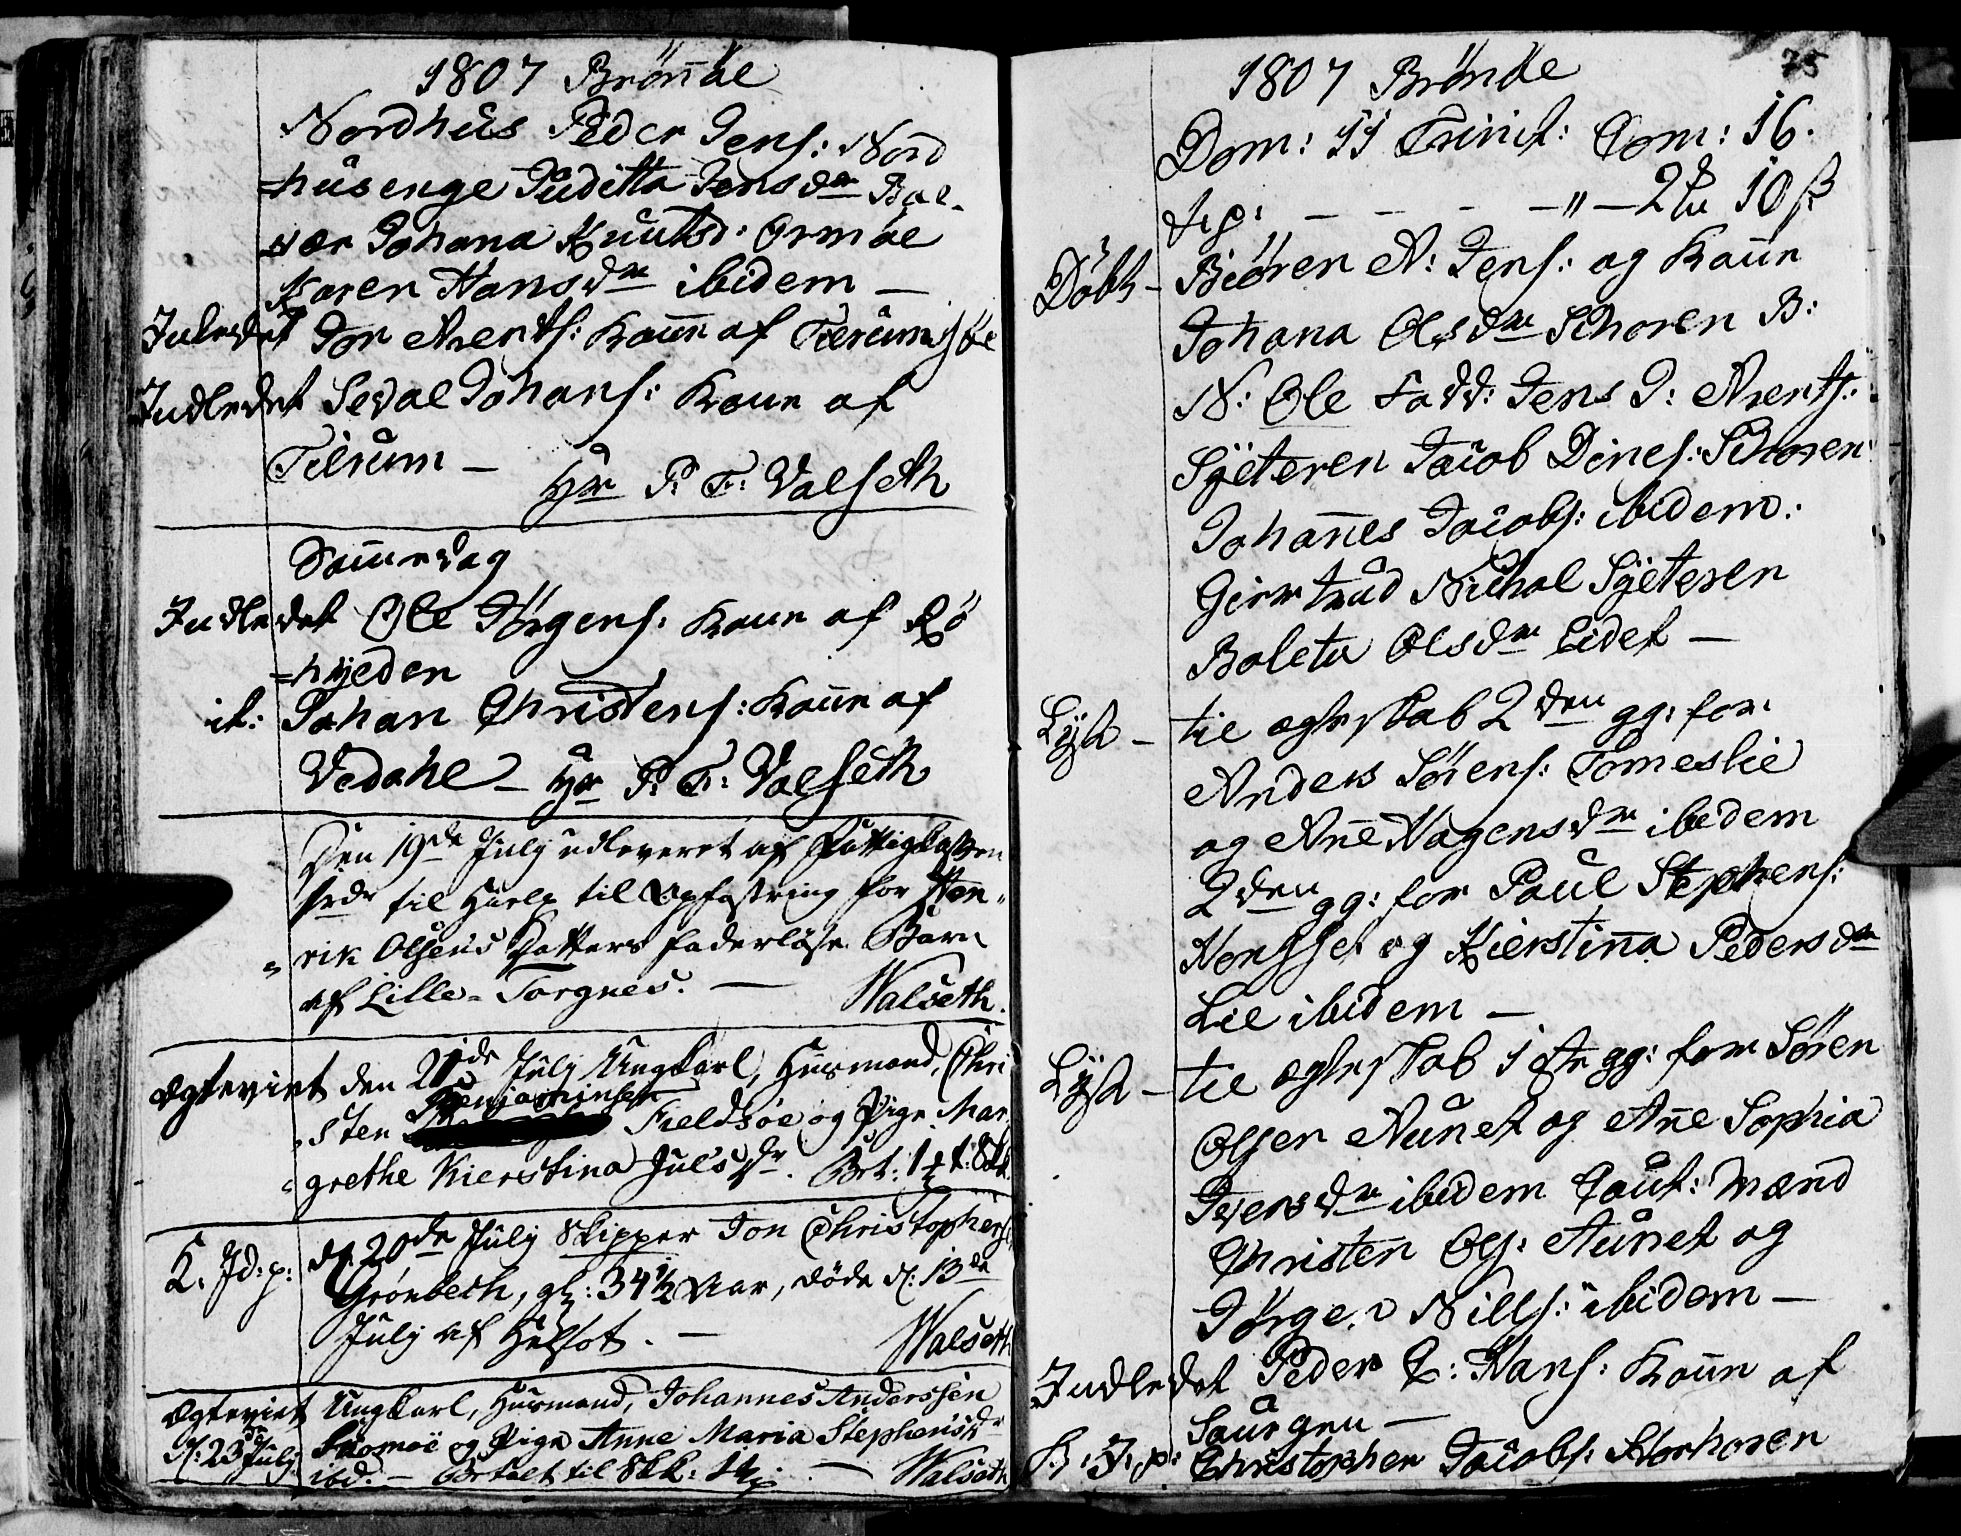 1807 Brönöe
Nordhuus Peder Jens: Nord
=huusenge Juditta Jensdr Bal-
vær Johana Knutsd: Ormöe
Karen Hansdr ibidem —
Inledet Jon Arents: Koune af Tilrum
Indledet Sevał Johans: Kone af
Tilrum — Hr P: T: Valseth
Samme dag
Indledet Ole Jörgens: Kone af Rö
=höjeden
it: Johan Christens: Kone af
Vedahl — Hr P: T: Valseth
Den 19de Julij udleveret af Fattigkassen
til Hielp til Opfostring for Hen„
„rik Olsens Datters faderløse Barn
af Lille-Torgnes. — Walseth.
Ægteviet den 21de Julij Ungkarl, Huusmand, Chri
„sten Benjaminsen Fieldsøe og Pige Mar„
„grethe Kierstina Juls dr. Bet: 1 8 sk.
K. Jd: p: d: 20de Julij Skipper Jon Christophers:
Grönbech, gl: 34½ Aar, døde d: 13de
Julij af Halsot. — Walseth
Ægteviet Ungkarl, Huusmand, Johannes Anderssen
d: 23de Julij og Pige Anne Maria Stephensdr
ibd. — Betalt til Skk: — Walseth
75
1807 Brönöe
Dom: 11 Trinit: Com: 16.
Tp: — — — — „ — 2 10 ß
Döbt — Biören A: Jens: og Koun
Johana Olsdr Schoren B:
N: Ole Fadd: Jens J: Arents:
Sÿeteren Jacob Dines: Schoren
Johannes Jacobs: ibidem:
Giertrud Nichal Sÿeteren
Boleta Olsdr Eidet —
Lÿst — til ægteskab 2den gg: for
Anders Sörens: Tomeslie
og Ane Hagensdr ibidem
2den gg: for Paul Stephens:
Horsset og Kierstina Pedersdr
Lie ibidem —
Lÿst — til ægteskab 1ste gg: for Sören
Olsen Aunet og Ane Sophia
Iversdr ibidem Caut: Mænd
Christen Ols: Aunet og
Jörgen Nills: ibidem —
Indledet Peder C: Hans: Koun af
Saurgru —
B: J: p: Christopher Jacobs: Storhoren